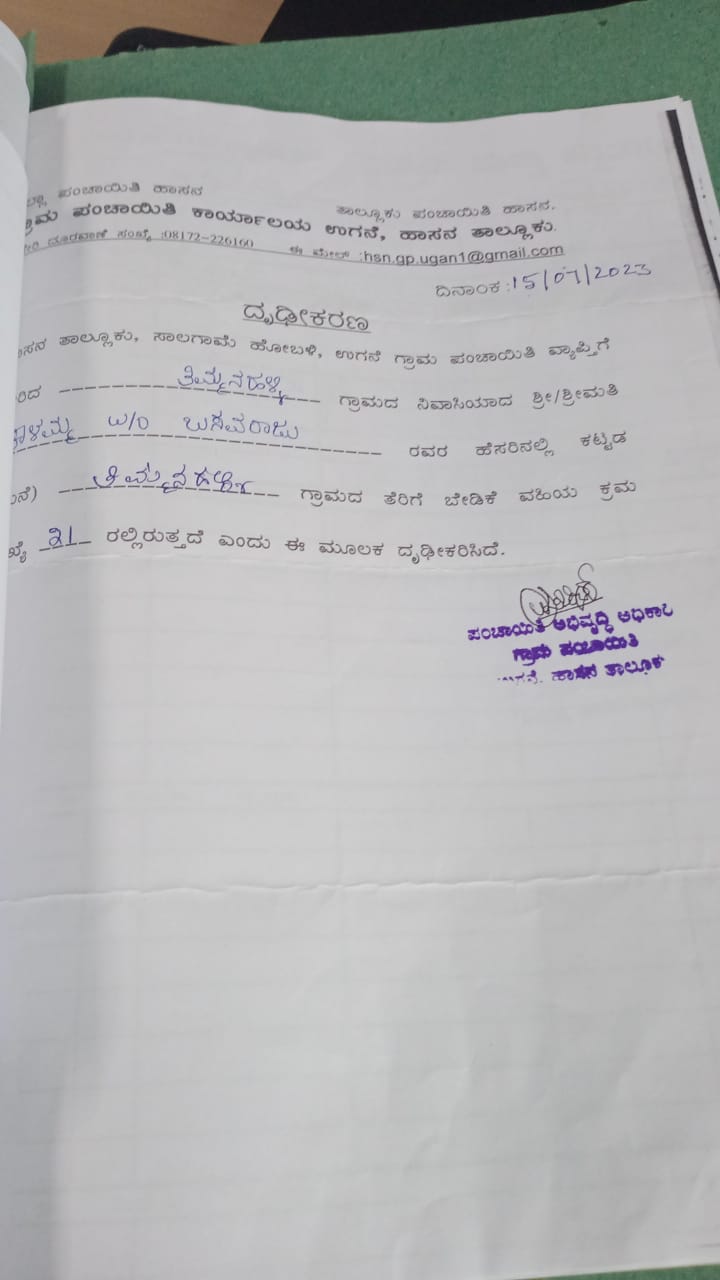 ಪಂಚಾಯಿತಿ ಹಾಸನ ತಾಲ್ಲೂಕು ಪಂಚಾಯಿತಿ ಹಾಸನ.
ಪಂಚಾಯಿತಿ ಕಾರ್ಯಾಲಯ ಉಗನೆ, ಹಾಸನ ತಾಲ್ಲೂಕು.
ದೂರವಾಣಿ ಸಂಖ್ಯೆ :08172-226160 ಈ ಮೇಲ್ :hsn.gp.ugan1@gmail.com
ದಿನಾಂಕ :15/07/2023
ದೃಢೀಕರಣ
ತಾಲ್ಲೂಕು, ಸಾಲಗಾಮೆ ಹೋಬಳಿ, ಉಗನೆ ಗ್ರಾಮ ಪಂಚಾಯಿತಿ ವ್ಯಾಪ್ತಿಗೆ
ತಿಮ್ಮನಹಳ್ಳಿ ಗ್ರಾಮದ ನಿವಾಸಿಯಾದ ಶ್ರೀ/ಶ್ರೀಮತಿ
W/O ಬಸವರಾಜು ರವರ ಹೆಸರಿನಲ್ಲಿ ಕಟ್ಟಡ
ತಿಮ್ಮನಹಳ್ಳಿ ಗ್ರಾಮದ ತೆರಿಗೆ ಬೇಡಿಕೆ ವಹಿಯ ಕ್ರಮ
21 ರಲ್ಲಿರುತ್ತದೆ ಎಂದು ಈ ಮೂಲಕ ದೃಢೀಕರಿಸಿದೆ.
ಪಂಚಾಯಿತಿ ಅಭಿವೃದ್ಧಿ ಅಧಿಕಾರಿ
ಗ್ರಾಮ ಪಂಚಾಯಿತಿ
ಹಾಸನ ತಾಲ್ಲೂಕು